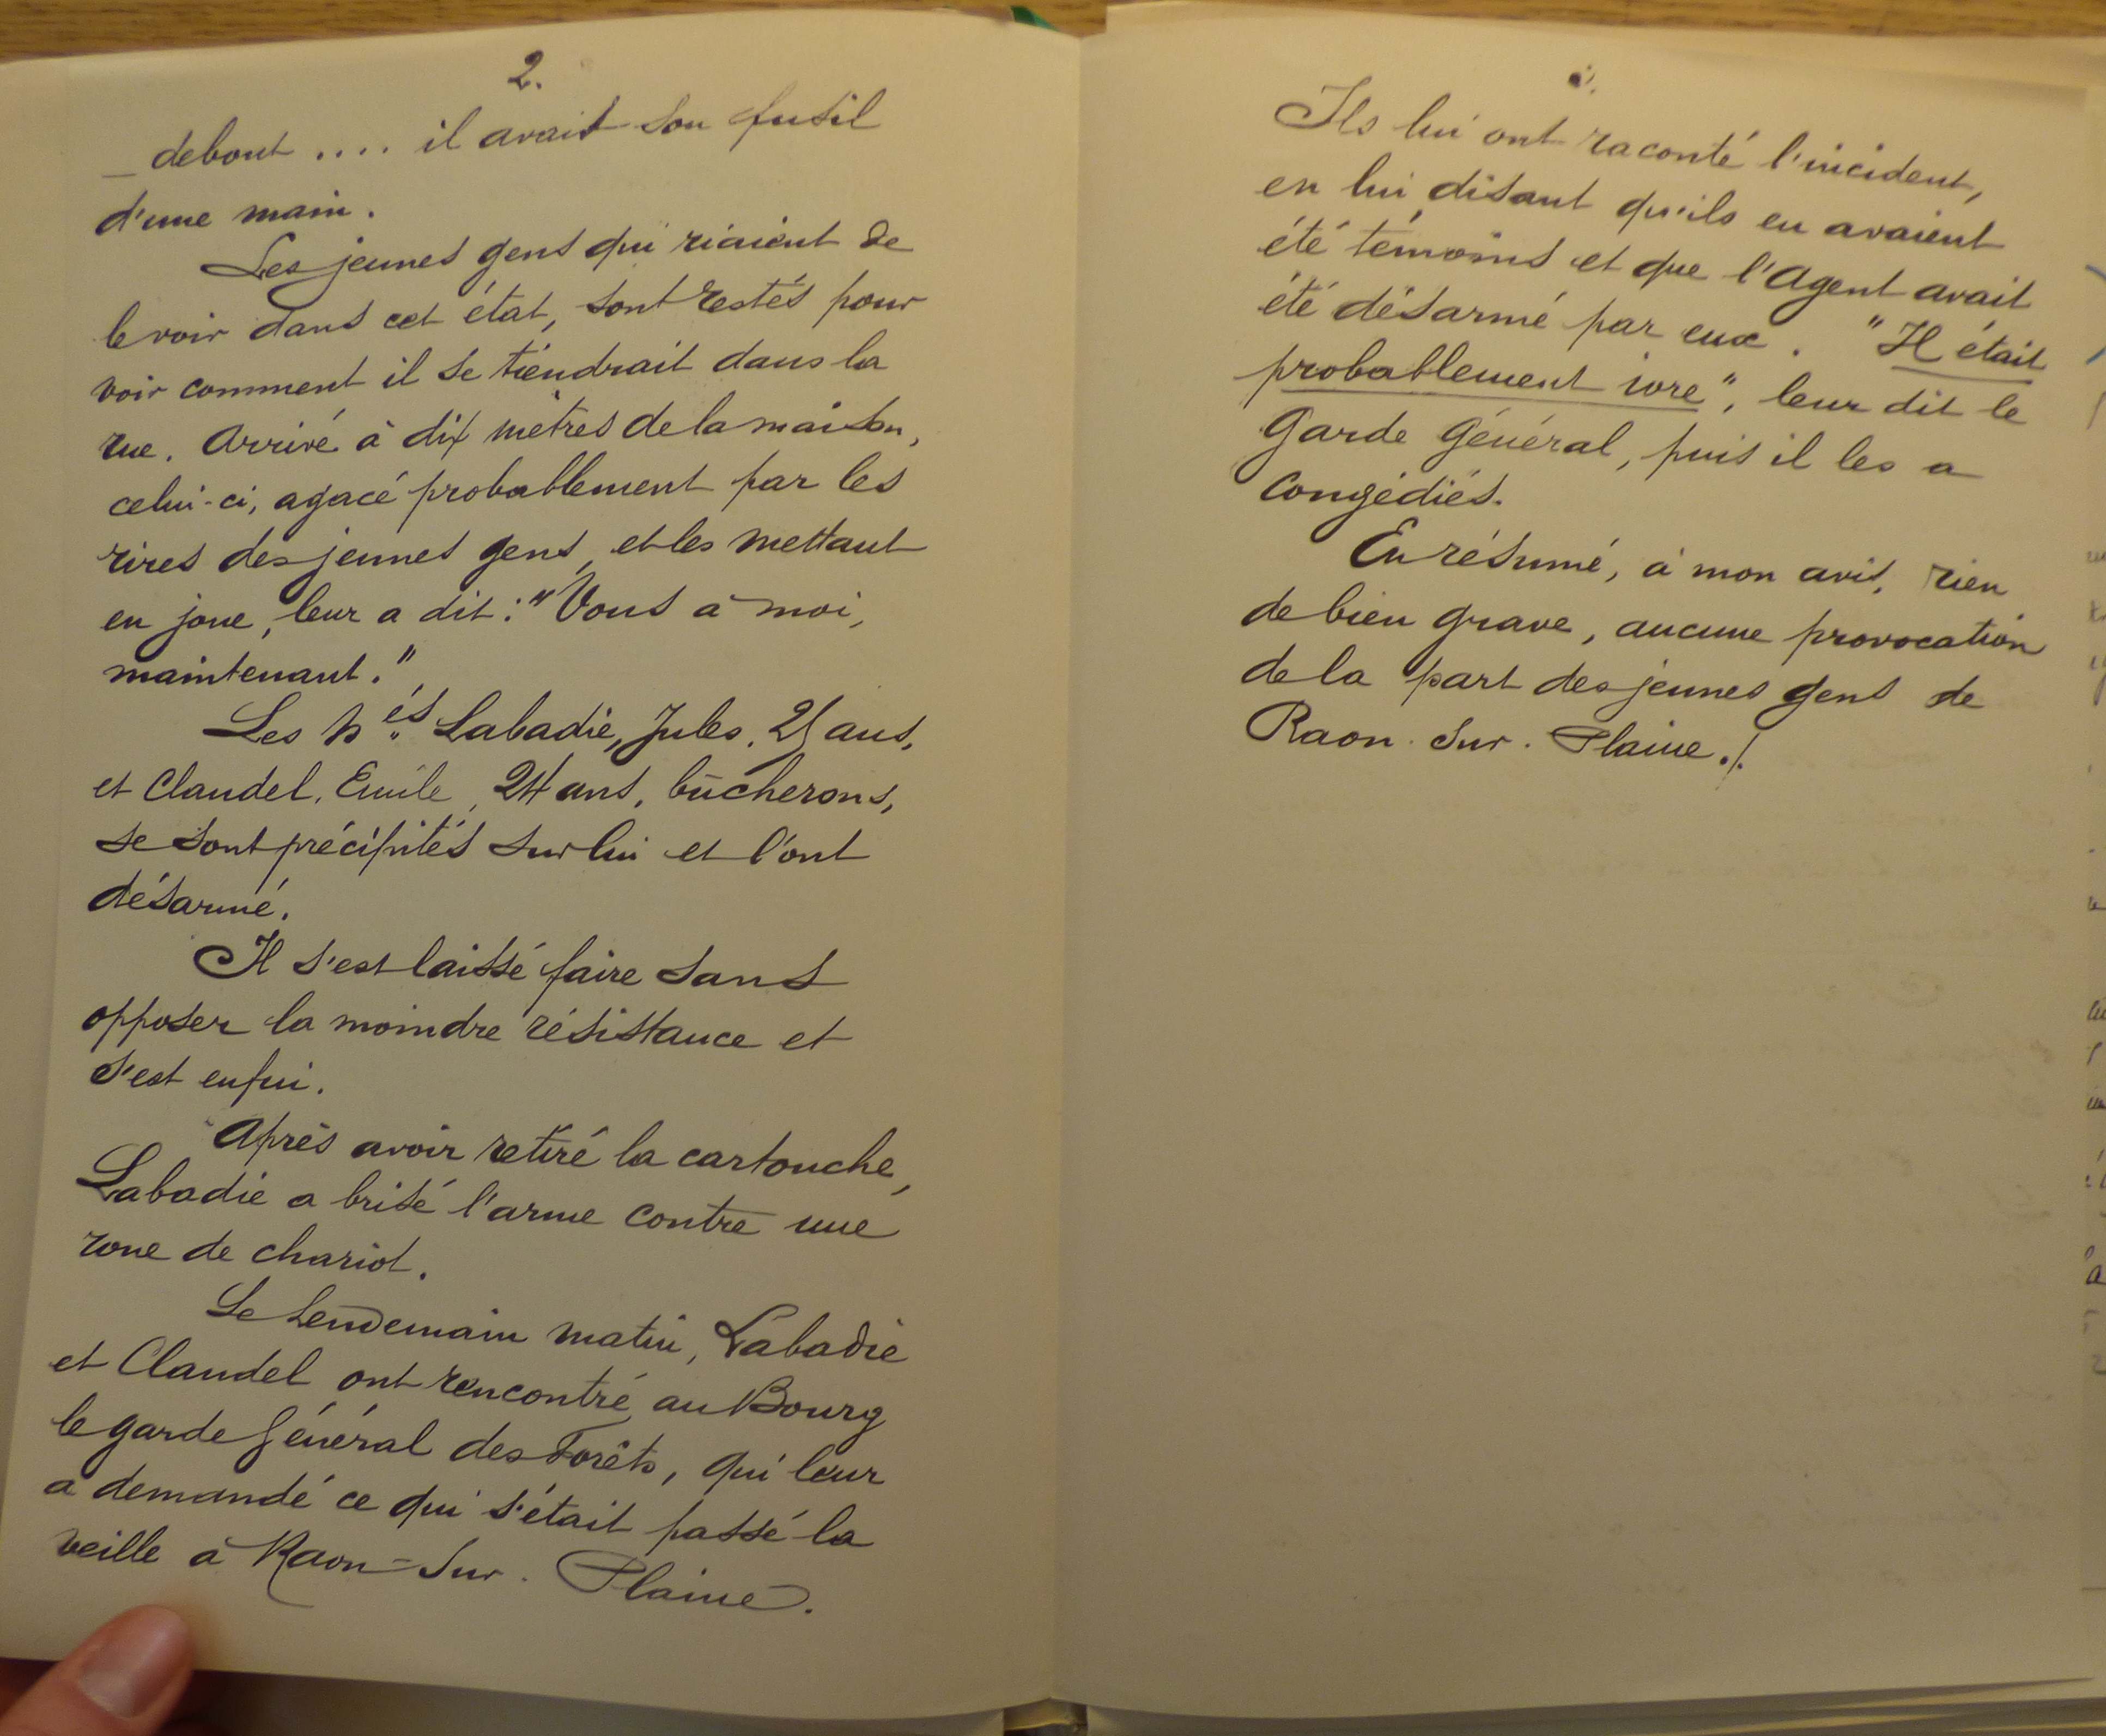 2.
debout .... il avait son fusil
d'une main.
Les jeunes gens qui riaient de
le voir dans cet état, sont restés pour
voir comment il se tiendrait dans la
rue. Arrivé à dix mètres de la maison,
celui-ci, agacé probablement par les
rires des jeunes gens, et les mettant
en joue, leur a dit : "Vous à moi,
maintenant."
Les nés Labadie, Jules, 25 ans,
et Claudel, Emile, 24 ans, bûcherons,
se sont précipités sur lui et l'ont
désarmé.
Il s'est laissé faire sans
opposer la moindre résistance et
s'est enfui.
Après avoir retiré la cartouche,
Labadie a brisé l'arme contre une
roue de chariot.
Le lendemain matin, Labadie
et Claudel ont rencontré au Bourg
le garde Général des Forêts, qui leur
a demandé ce qui s'était passé la
veille à Raon-sur-Plaine.
Ils lui ont raconté l'incident,
en lui disant qu'ils en avaient
été témoins et que l'Agent avait
été désarmé par eux. "Il était
probablement ivre", leur dit le
Garde Général, puis il les a
congédiés.
En résumé, à mon avis, rien
de bien grave, aucune provocation
de la part des jeunes gens de
Raon-sur-Plaine./.